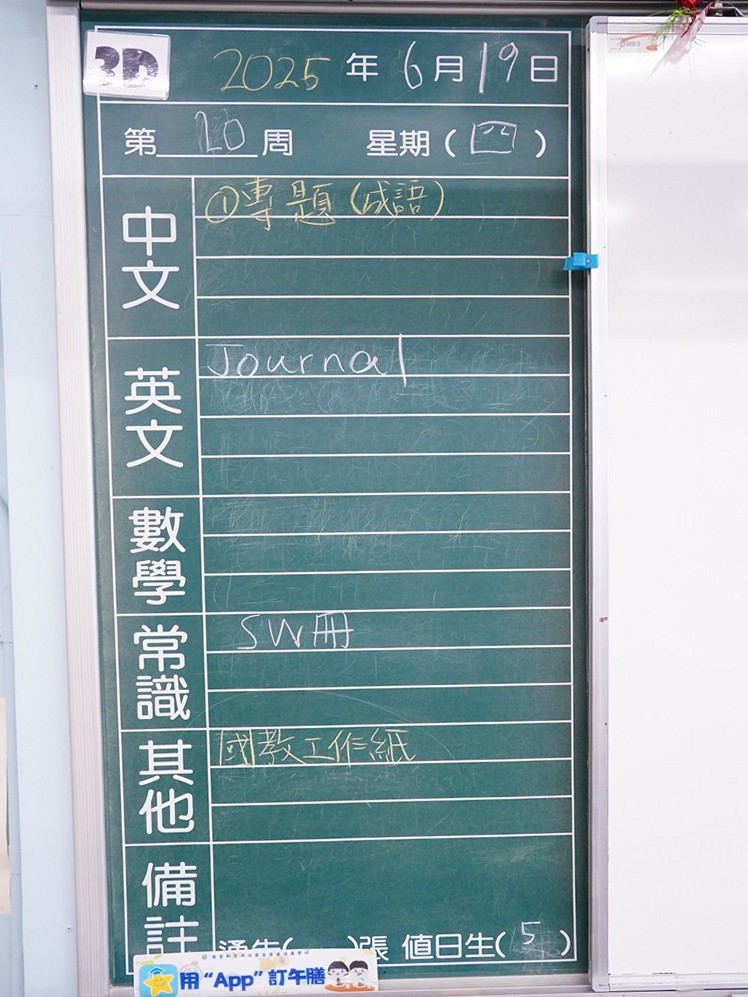 3D
2025年6月19日
第20周 星期(四)
中文
①專題(成語)
英文
Journal
數學
常識
SW冊
其他
國教工作紙
備註
通告( )張 值日生(5)
用“App”訂午膳